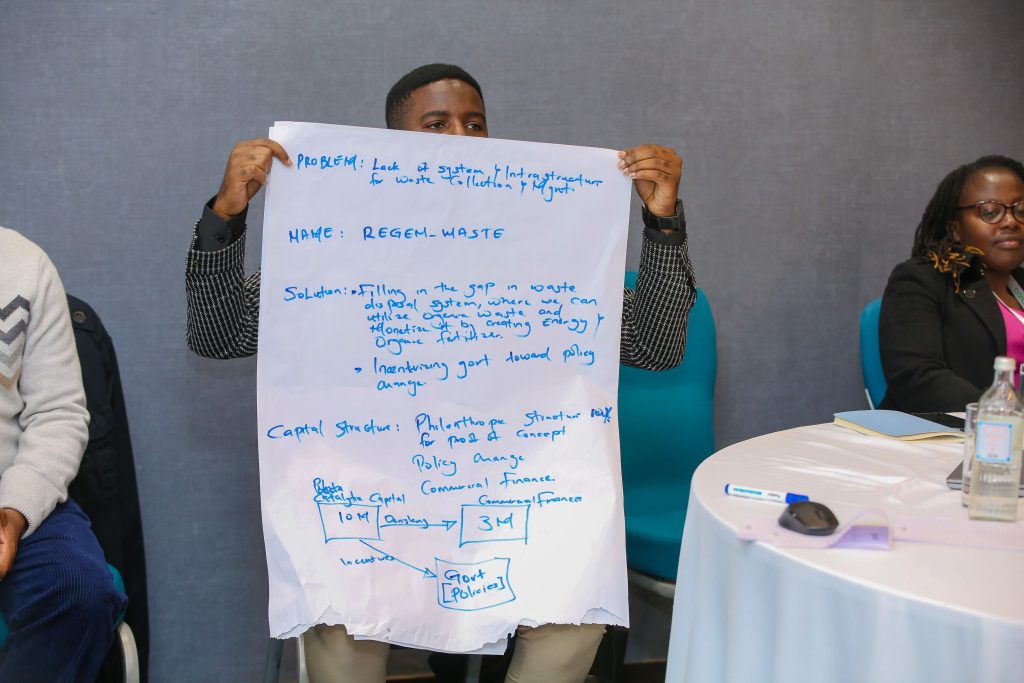 PROBLEM: Lack of system & Infrastructure
for Waste Collection & Mgmt.
NAME: REGEM-WASTE
Solution: • Filling in the gap in waste
disposal system, where we can
utilize organic waste and
Monetize it by creating Energy &
Organic fertilizer.
• Incentivizing govt toward policy
change.
Capital Structure: Philanthropic Structure
for proof of concept
Policy change
Commercial Finance.
Catalytic Capital
Commercial Finance
10M
3M
Incentives
Govt
[Policies]